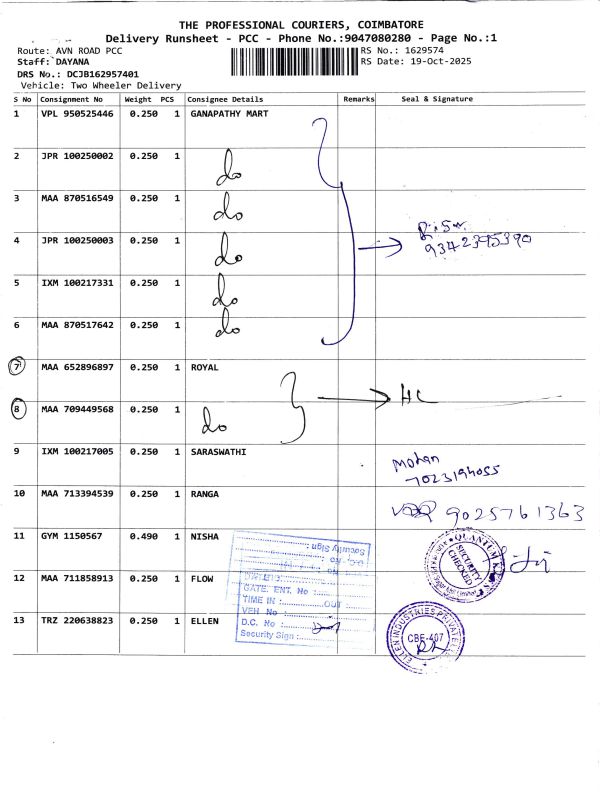 THE PROFESSIONAL COURIERS, COIMBATORE
Delivery Runsheet - PCC - Phone No.:9047080280 - Page No.:1
Route: AVN ROAD PCC RS No.: 1629574
Staff: DAYANA RS Date: 19-Oct-2025
DRS No.: DCJB162957401
Vehicle: Two Wheeler Delivery
S No Consignment No Weight PCS Consignee Details Remarks Seal & Signature
1 VPL 950525446 0.250 1 GANAPATHY MART
2 JPR 100250002 0.250 1 do
3 MAA 870516549 0.250 1 do
4 JPR 100250003 0.250 1 do 9342395390
5 IXM 100217331 0.250 1 do
6 MAA 870517642 0.250 1 do
7 MAA 652896897 0.250 1 ROYAL HC
8 MAA 709449568 0.250 1 do
9 IXM 100217005 0.250 1 SARASWATHI Mohan
7023194055
10 MAA 713394539 0.250 1 RANGA 9025761363
11 GYM 1150567 0.490 1 NISHA
Security Sign :
D.C. No :
QUANTUM
SECURITY
CHECKED
12 MAA 711858913 0.250 1 FLOW
GATE. ENT. No :
TIME IN : OUT
VEH No :
13 TRZ 220638823 0.250 1 ELLEN
D.C. No :
Security Sign :
ELLEN INDUSTRIES PRIVATE
CBE-407